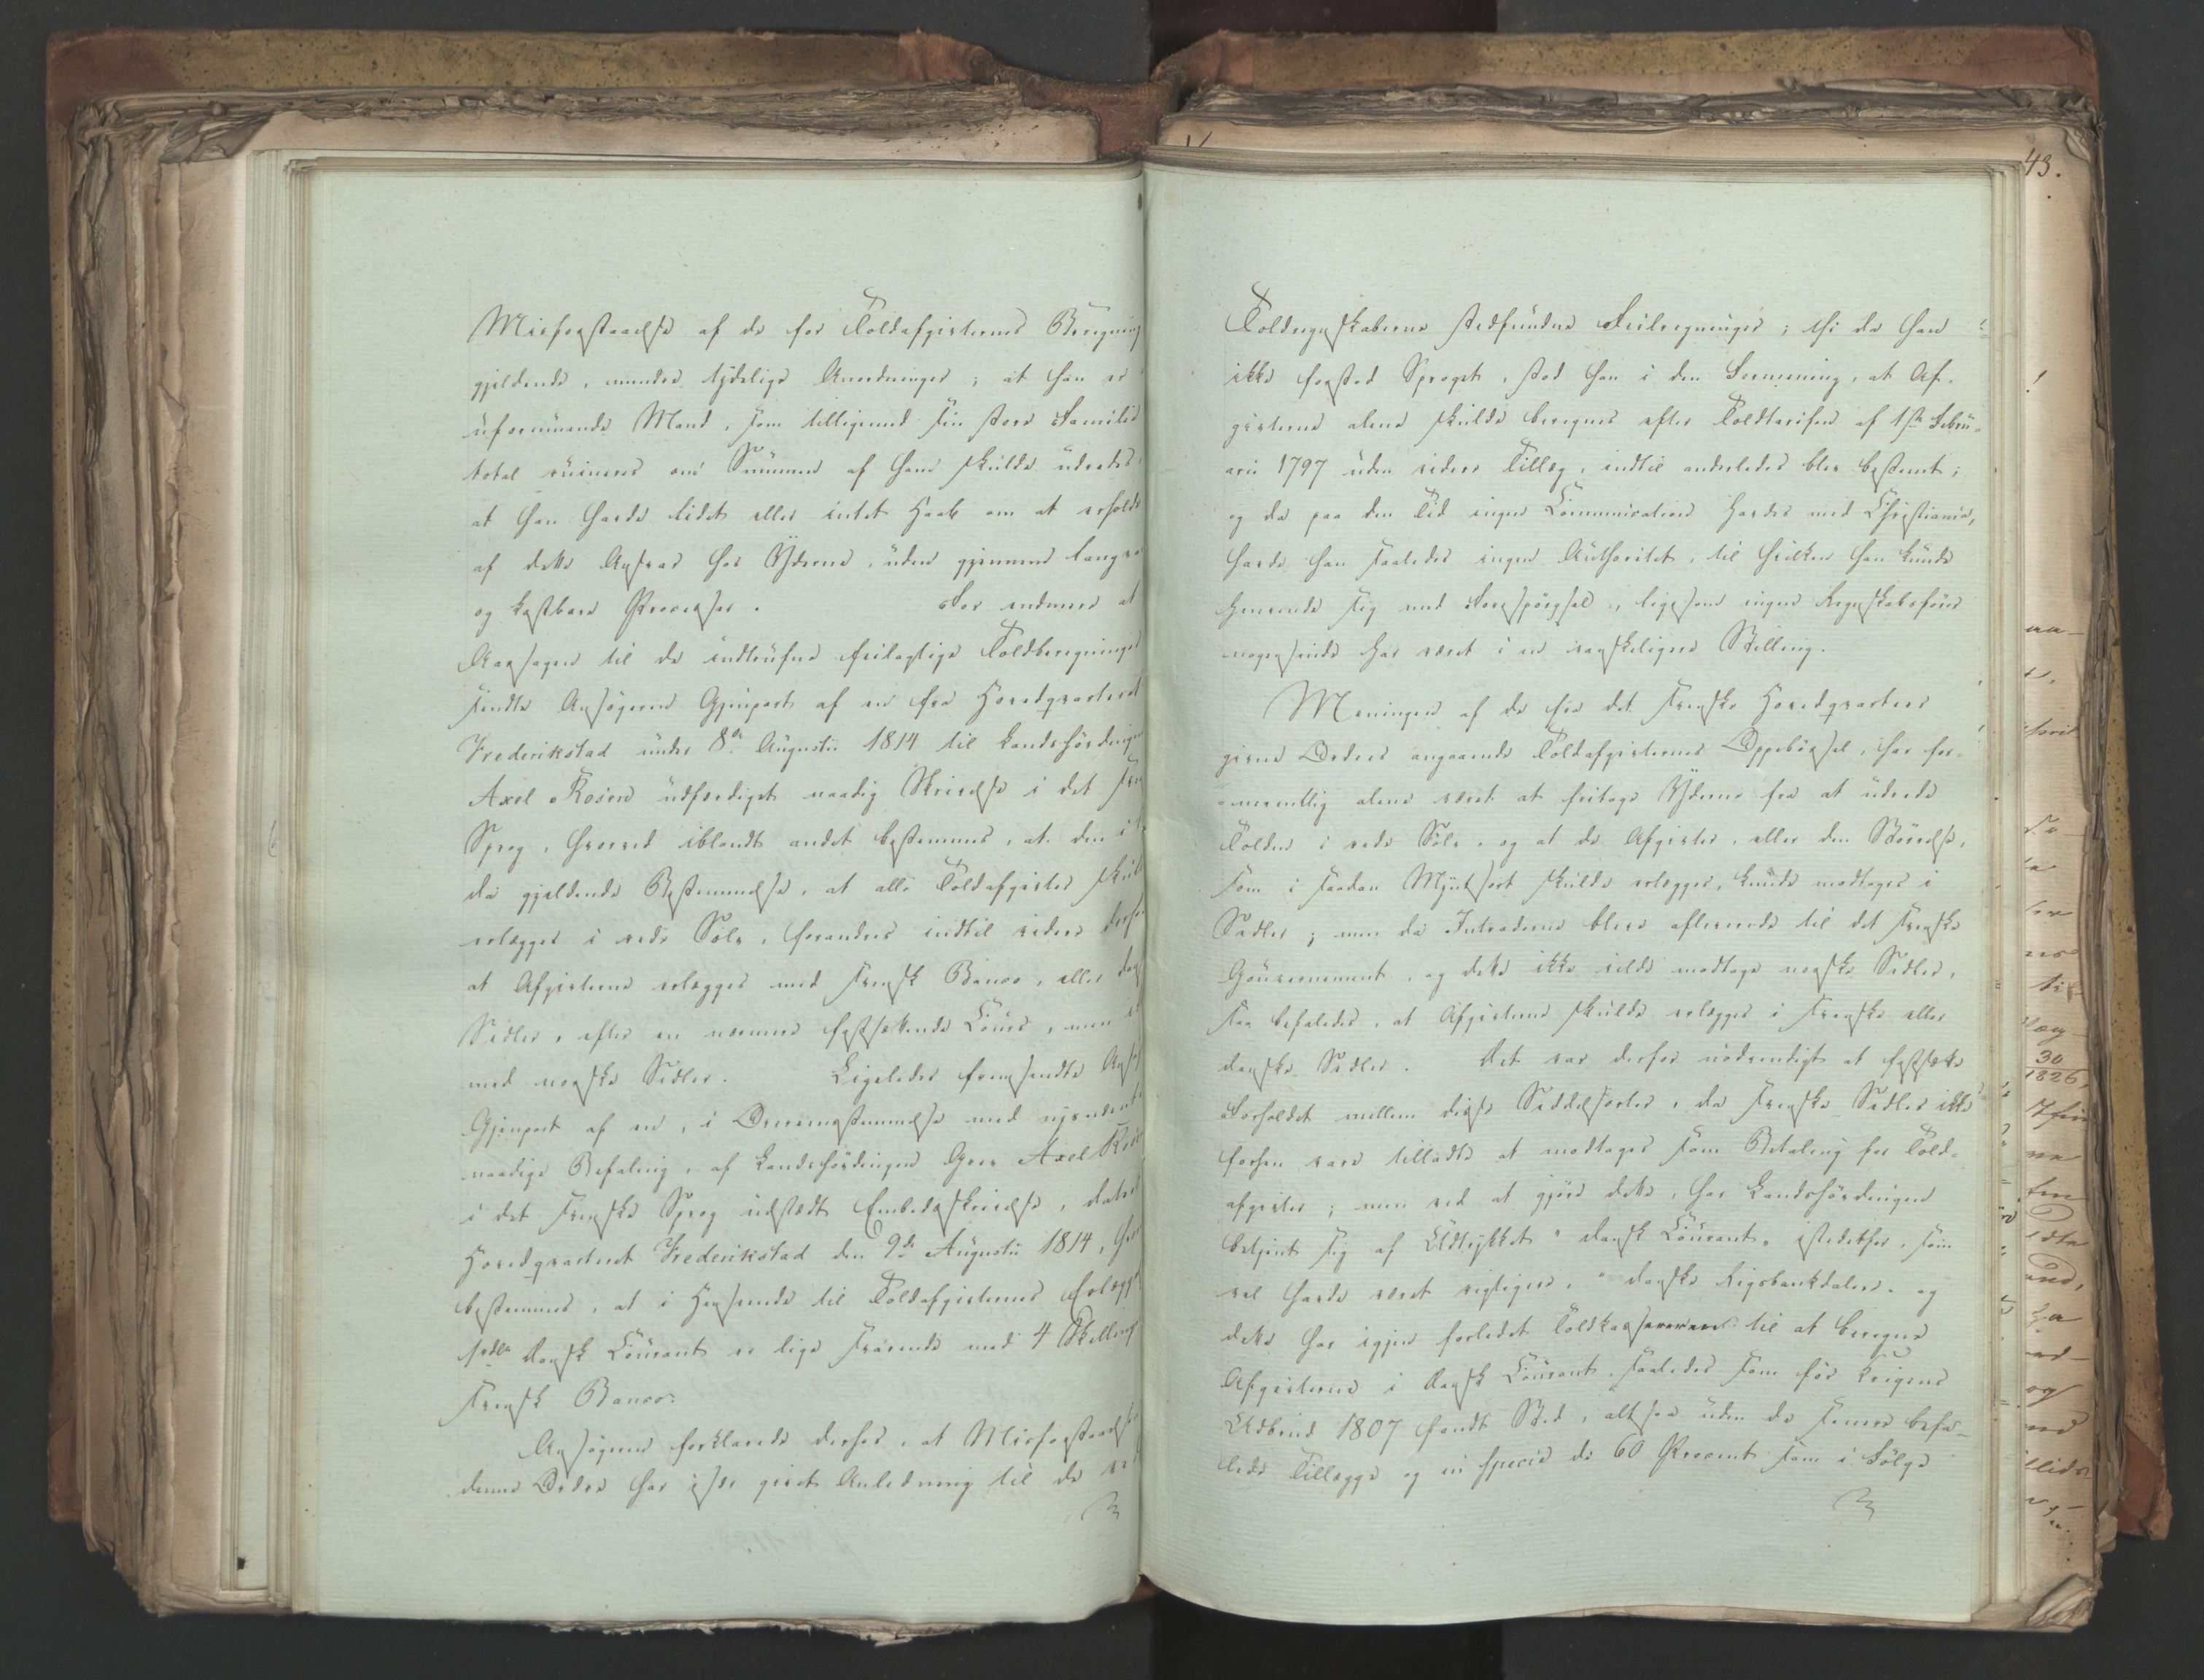 Misforstaaelse af de for Toldafgifternes Beregning
gjeldende, mindre tydelige Anordninger; at han er
uformuende Mand, som tilligemed sin store Familie
total ruineres om Summen af ham skulde udredes,
at han havde lidet eller intet Haab om at erholde
af dette Ansvar hos Yderne, uden gjennem langva
og kostbare Processer. For endmere at
Aarsagen til de indtrufne feilagtige Toldberegninger
sendte Ansøgeren Gjenpart af en fra Hovedqvarteret
Frederikstad under 8de Augustii 1814 til Landshövdingen
Axel Rosen udfærdiget naadig Skrivelse i det sve
Sprog, hvorved iblandt andet bestemmes, at den i
da gjeldende Bestemmelse, at alle Toldafgifter skul
erlægges i rede Sølv, forandres indtil videre derhe
at Afgifterne erlægges med svensk Banco, eller dansk
Sedler, efter en nærmere fastsættende Cours, men ik
med norske Sedler. Ligeledes fremsendte Ans
Gjenpart af en, i Overensstemmelse med
naadige Befaling, af Landshövdingen Grev Axel Ros
i det svenske Sprog udstædt Embedsskrivelse, dateret
Hovedqvarteret Frederikstad den 9de Augustii 1814, hvor
bestemmes, at i Henseende til Toldafgifternes Erlægge
1 rdlr dansk Courant er lige svarende mod 4 Skilling
svensk Banco.
Ansøgeren forklarede derhos, at Misforstaaelse
denne Ordre har især givet Anledning til de ved
43.
Toldregnskaberne stedfundne Feilregninger; thi da han
ikke forstod Sproget, stod han i den Formening, at Af-
gifterne alene skulde beregnes efter Toldtariffen af 1ste Febru-
arii 1797 uden videre Tillæg, indtil anderledes blev bestemt;
og da paa den Tid ingen Communication havdes med Christiania,
havde han saaledes ingen Authoritet, til hvilken han kunde
henvende sig med Forespörgsel, ligesom ingen Regnskabsförer
nogensinde har været i en vanskeligere Stilling.
Meningen af de fra det svenske Hovedqvarteer
givne Ordres angaaende Toldafgifternes Oppebörsel, har for-
mentlig alene været at fritage Yderne fra at udrede
Tolden i rede Sølv, og at de Afgifter, eller den Störrelse,
som i saadan Myntsort skulde erlægges, kunde modtages i
Sedler; men da Intraderne bleve afleverede til det svenske
Gouvernement, og dette ikke vilde modtage norske Sedler,
saa befaledes, at Afgifterne skulde erlægges i svenske eller
danske Sedler. Det var derfor nödvendigt at fastsætte
Forholdet mellem disse Seddelsorter, da svenske Sedler ikke
forhen vare tilladte at modtages som Betaling for Told-
afgifter; men ved at gjöre dette, har Landshövdingen
betjent sig af Udtrykket "dansk Courant" istedetfor, som
vel havde været rigtigere, "danske Rigsbankdaler" og
dette har igjen forledet Toldkassereren til at beregne
Afgifterne i dansk Courant, saaledes som för Krigens
Udbrud 1807 fandt Sted, altsaa uden de senere befa-
lede Tillægge og in specie de 60 Procent som i Fölge